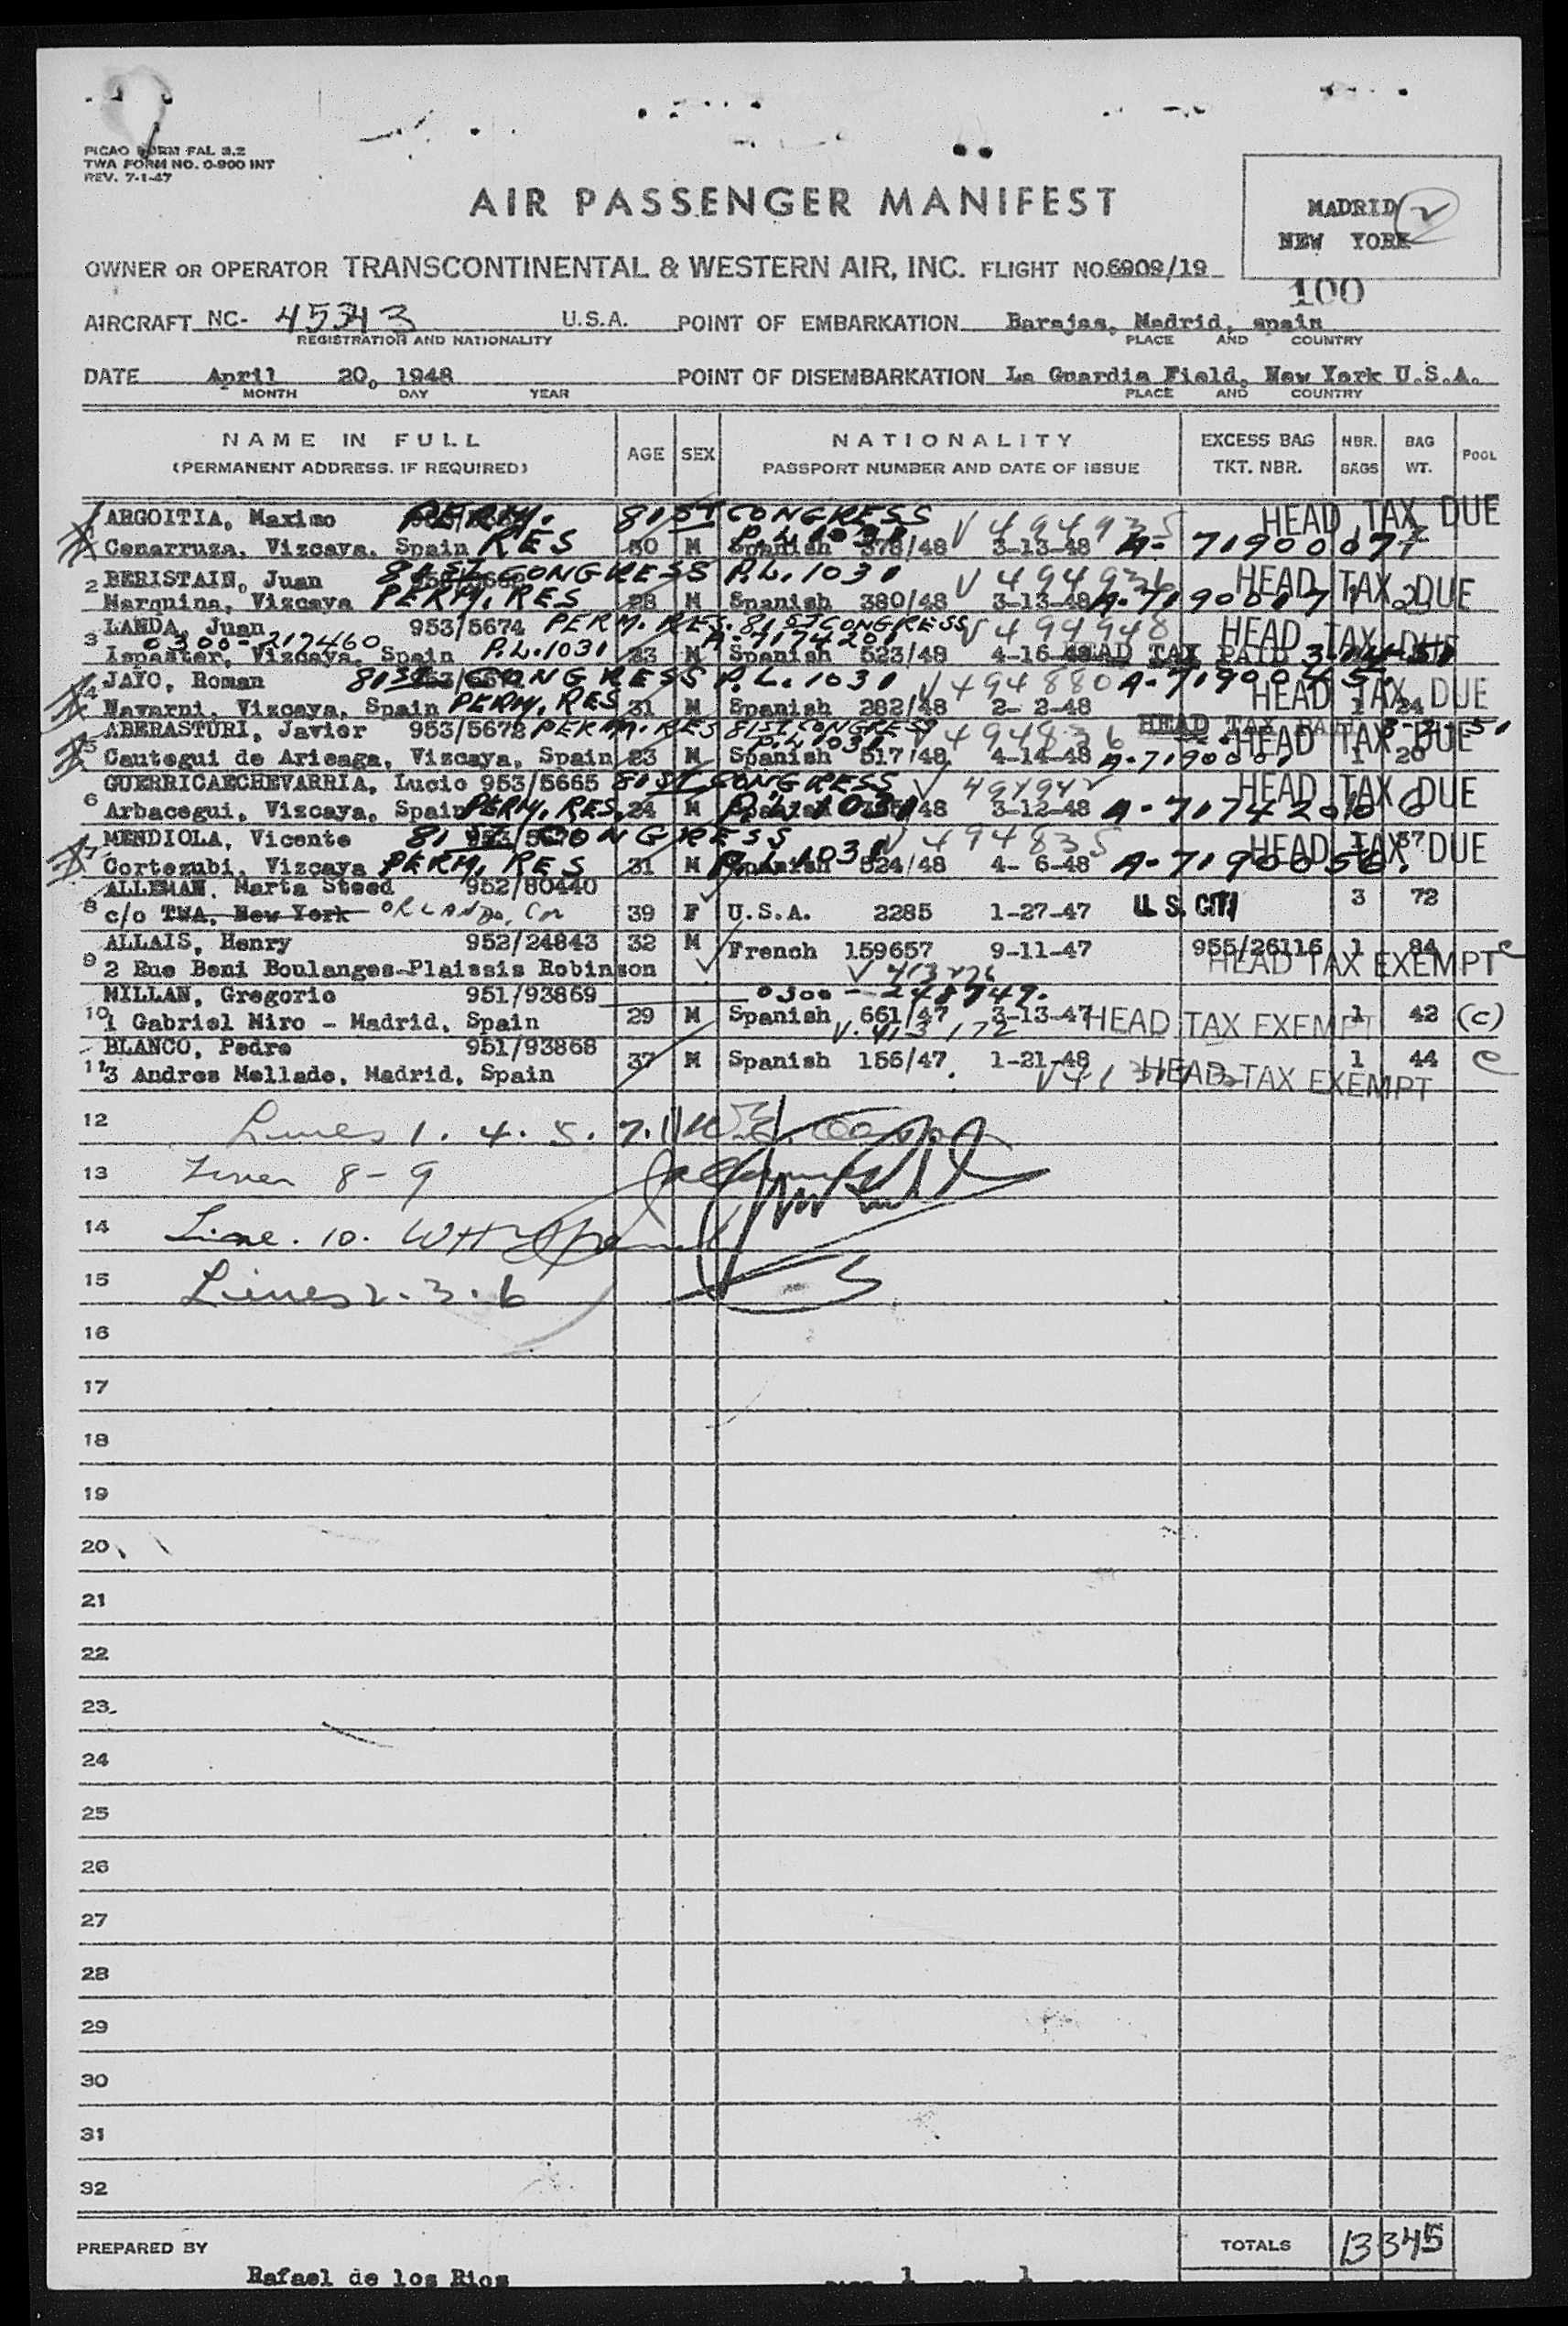 PICAO FORM FAL 3.2
TWA FORM NO. 0-900 INT
REV. 7-1-47
AIR PASSENGER MANIFEST
MADRID
NEW YORK
OWNER OR OPERATOR TRANSCONTINENTAL & WESTERN AIR, INC. FLIGHT NO. 6909/19
100
AIRCRAFT NC- 45343 U.S.A. POINT OF EMBARKATION Barajas, Madrid, spain
REGISTRATION AND NATIONALITY PLACE AND COUNTRY
DATE April 20, 1948 POINT OF DISEMBARKATION La Guardia Field, New York U.S.A.
MONTH DAY YEAR PLACE AND COUNTRY
NAME IN FULL AGE SEX NATIONALITY EXCESS BAG NBR. BAG POOL
(PERMANENT ADDRESS. IF REQUIRED) PASSPORT NUMBER AND DATE OF ISSUE TKT. NBR. BAGS WT.
ARGOITIA, Maximo PERM. 81ST CONGRESS V 494935 HEAD TAX DUE
Cenarruza, Vizcaya, Spain RES M P.L. 1031 Spanish 378/48 3-13-48
2 BERISTAIN, Juan 81ST CONGRESS P.L. 1031 V 494936 HEAD TAX DUE
Marquina, Vizcaya PERM. RES 28 M Spanish 380/48 3-13-48
LANDA, Juan 953/5674 PERM. RES. 81ST CONGRESS V 494948 HEAD TAX DUE
3 0300-217460 P.L. 1031 A-7174201
Ispaster, Vizcaya, Spain 23 M Spanish 523/48 4-16-48 HEAD TAX PAID
4 JAYO, Roman 81ST CONGRESS P.L. 1031 V 494880 HEAD TAX DUE
Navarni, Vizcaya, Spain PERM. RES 31 M Spanish 282/48 2- 2-48 1 24
ABERASTURI, Javier 953/5672 PERM. RES 81ST CONGRESS P.L. 1031 V 494836 HEAD TAX DUE
5 Cautegui de Arieaga, Vizcaya, Spain 23 M Spanish 517/48 4-14-48 1 20
GUERRICAECHEVARRIA, Lucio 953/5665 81ST CONGRESS V 494942 HEAD TAX DUE
6 Arbacegui, Vizcaya, Spain PERM. RES. 24 M P.L. 1031 3-12-48
7 MENDIOLA, Vicente 81ST CONGRESS V 494835 HEAD TAX DUE
Cortezubi, Vizcaya PERM. RES 31 M P.L. 1031 Spanish 524/48 4- 6-48 A-7190056.
ALLEMAN, Marta Steed 952/80440
8 c/o TWA, New York 39 F U.S.A. 2285 1-27-47 U.S. CITI 3 72
ALLAIS, Henry 952/24843 32 M French 159657 9-11-47 955/26116 1 84
9 2 Rue Beni Boulanges-Plaissis Robinson HEAD TAX EXEMPT
MILLAN, Gregorio 951/93869 0300-248747.
10 1 Gabriel Miro - Madrid, Spain 29 M Spanish 661/47 3-13-47 HEAD TAX EXEMPT 1 42 (C)
V. 413172
BLANCO, Pedro 951/93868
11 3 Andres Mellado, Madrid, Spain 37 M Spanish 156/47 1-21-48 HEAD TAX EXEMPT 1 44 C
12 Lines 1. 4. 5. 7. 11
13 Lines 8-9
14 Line. 10.
15 Lines 2. 3. 6
16
17
18
19
20
21
22
23
24
25
26
27
28
29
30
31
32
PREPARED BY TOTALS 13 345
Rafael de los Rios 1 1